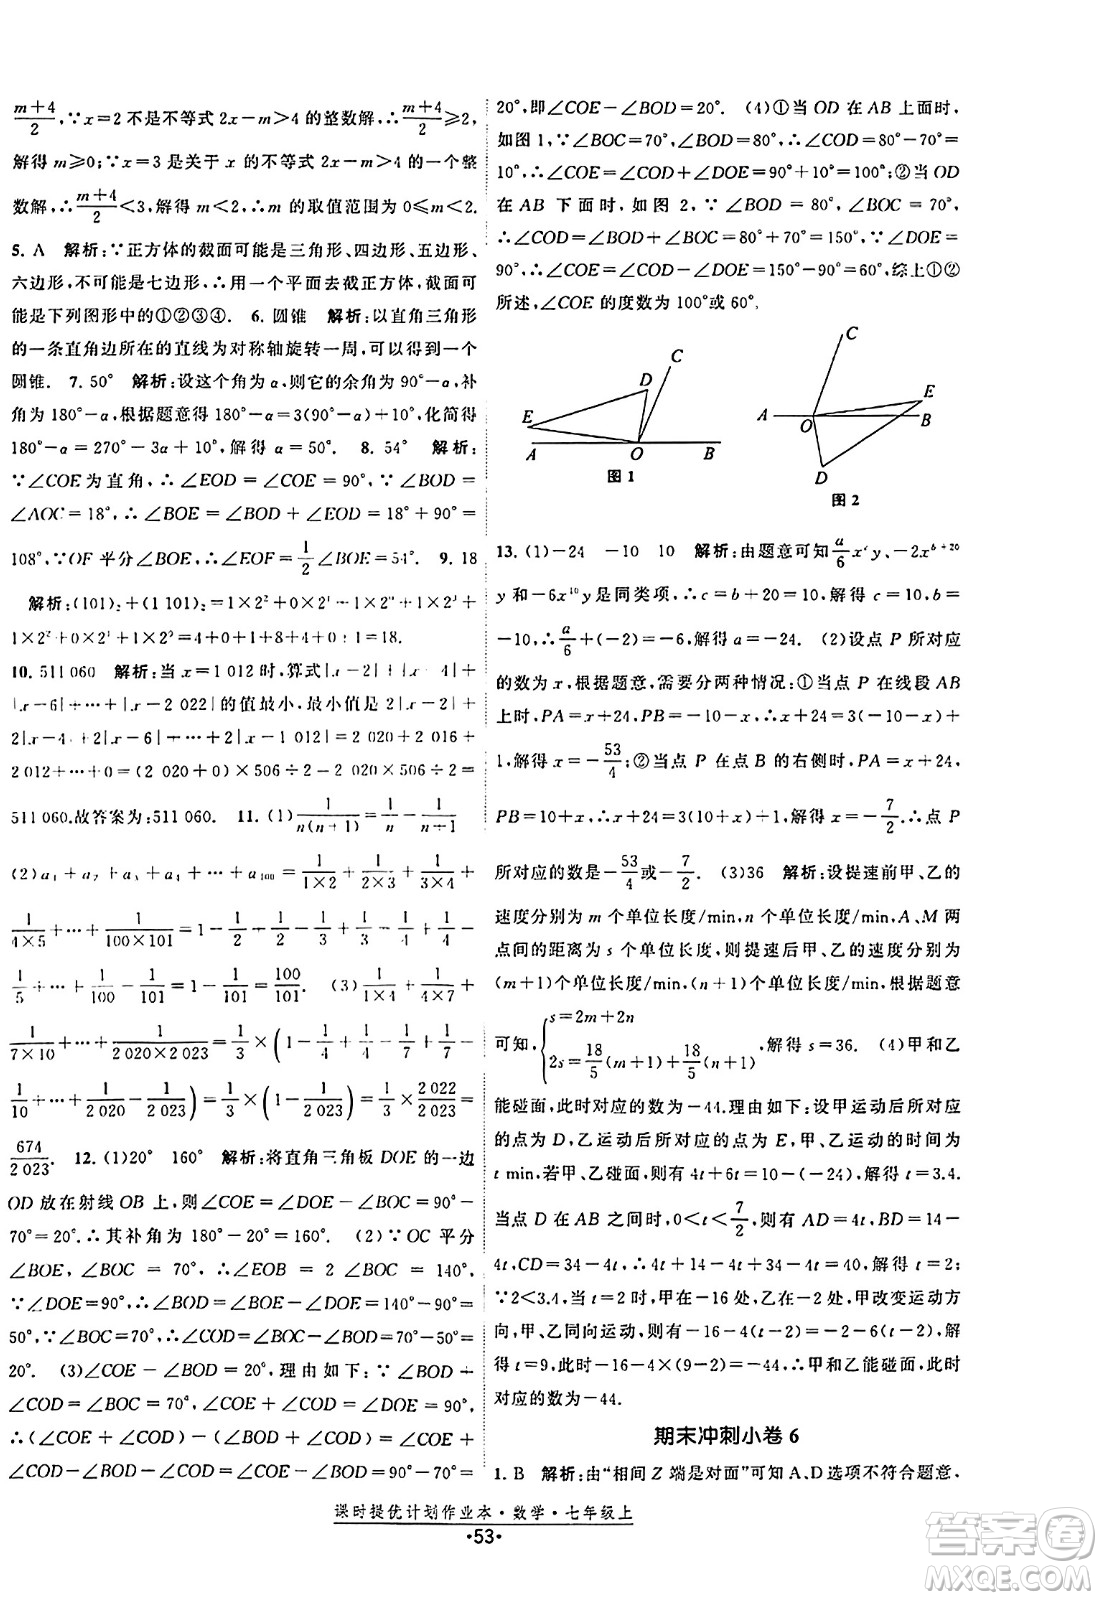 m+4/2,∵x=2 不是不等式 2x-m>4 的整数解,∴m+4/2≥2,
解得 m≥0;∵x=3 是关于 x 的不等式 2x-m>4 的一个整
数解,∴m+4/2<3,解得 m<2,∴m 的取值范围为 0≤m<2.
5. A 解析:∵正方体的截面可能是三角形、四边形、五边形、
六边形,不可能是七边形,∴用一个平面去截正方体,截面可
能是下列图形中的①②③④. 6. 圆锥 解析:以直角三角形
的一条直角边所在的直线为对称轴旋转一周,可以得到一个
圆锥. 7. 50° 解析:设这个角为α,则它的余角为90°-α,补
角为180°-α,根据题意得180°-α=3(90°-α)+10°,化简得
180°-α=270°-3α+10°,解得α=50°. 8. 54° 解析:
∵∠COE为直角,∴∠EOD=∠COE=90°,∵∠BOD=
∠AOC=18°,∴∠BOE=∠BOD+∠EOD=18°+90°=
108°,∵OF平分∠BOE,∴∠EOF=1/2∠BOE=54°. 9. 18
解析:(101)₂+(1 101)₂=1×2²+0×2¹+1×2⁰+1×2³+
1×2²+0×2¹+1×2⁰=4+0+1+8+4+0+1=18.
10. 511 060 解析:当 x=1 012时,算式|x-2|+|x-4|+
|x-6|+⋯+|x-2 022|的值最小,最小值是|x-2|+
2|x-4|+2|x-6|+⋯+2|x-1 011|=2 020+2 016+
2 012+⋯=(2 020+0)×506÷2=2 020×506÷2=
511 060.故答案为:511 060. 11. (1)1/n(n+1)=1/n-1/n+1
(2)a₁+a₂+a₃+a₄+⋯+a₁₀₀=1/1×2+1/2×3+1/3×4+
1/4×5+⋯+1/100×101=1-1/2+1/2-1/3+1/3-1/4+1/4-
1/5+⋯+1/100-1/101=1-1/101=100/101. (3)1/1×4+1/4×7+
1/7×10+⋯+1/2 020×2 023=1/3×(1-1/4+1/4-1/7+1/7-
1/10+⋯+1/2 020-1/2 023)=1/3×(1-1/2 023)=1/3×2 022/2 023=
674/2 023. 12. (1)20° 160° 解析:将直角三角板DOE的一边
OD放在射线OB上,则∠COE=∠DOE-∠BOC=90°-
70°=20°.∴其补角为180°-20°=160°. (2)∵OC平分
∠BOE,∠BOC=70°,∴∠EOB=2∠BOC=140°,
∵∠DOE=90°,∴∠BOD=∠BOE-∠DOE=140°-90°=
50°,∵∠BOC=70°,∴∠COD=∠BOC-∠BOD=70°-50°=
20°. (3)∠COE-∠BOD=20°,理由如下:∵∠BOD+
∠COD=∠BOC=70°,∠COE+∠COD=∠DOE=90°,
∴(∠COE+∠COD)-(∠BOD+∠COD)=∠COE+
∠COD-∠BOD-∠COD=∠COE-∠BOD=90°-70°=
20°,即∠COE-∠BOD=20°. (4)①当OD在AB上面时,
如图1,∵∠BOC=70°,∠BOD=80°,∴∠COD=80°-70°=
10°,∴∠COE=∠COD+∠DOE=90°+10°=100°;②当OD
在AB下面时,如图2,∵∠BOD=80°,∠BOC=70°,
∴∠COD=∠BOD+∠BOC=80°+70°=150°,∵∠DOE=
90°,∴∠COE=∠COD-∠DOE=150°-90°=60°,综上①②
所述,∠COE的度数为100°或60°.
C
D
E
A
O
B
图1
C
E
A
O
B
D
图2
13. (1)-24 -10 10 解析:由题意可知a/6xᶜy、-2xᵇ⁺²⁰
y和-6x¹⁰y是同类项,∴c=b+20=10,∴c=10,b=
-10,∴a/6+(-2)=-6,解得a=-24. (2)设点P所对应
的数为x,根据题意,需要分两种情况:①当点P在线段AB
上时,PA=x+24,PB=-10-x,∴x+24=3(-10-x)+
1,解得x=-53/4;②当点P在点B的右侧时,PA=x+24,
PB=10+x,∴x+24=3(10+x)+1,解得x=-7/2,∴点P
所对应的数是-53/4或-7/2. (3)36 解析:设提速前甲、乙的
速度分别为m个单位长度/min,n个单位长度/min,A、M两
点间的距离为s个单位长度,则提速后甲、乙的速度分别为
(m+1)个单位长度/min,(n+1)个单位长度/min,根据题意
可知,{s=2m+2n 2s=18/5(m+1)+18/5(n+1),解得s=36. (4)甲和乙
能碰面,此时对应的数为-44.理由如下:设甲运动后所对应
的点为D,乙运动后所对应的点为E,甲、乙运动的时间为
t min.若甲、乙碰面,根据题意得4t+6t=10-(-24),解得t=3.4.
当点D在AB之间时,0<t<7/2,则有AD=4t,BD=14-
4t,CD=34-4t,∴4t+14-4t+34-4t=40,解得t=2;
∵2<3.4,当t=2时,甲在-16处,乙在-2处,甲改变运动方
向,甲、乙同向运动,∴-16-4(t-2)=-2-6(t-2),解
得t=9,此时-16-4×(9-2)=-44,∴甲和乙能碰面,此时
对应的数为-44.
期末冲刺小卷6
1. B 解析:由“相间Z端是对面”可知A、D选项不符合题意,
课时提优计划作业本·数学·七年级上
·53·
答案圈
MXQE.COM